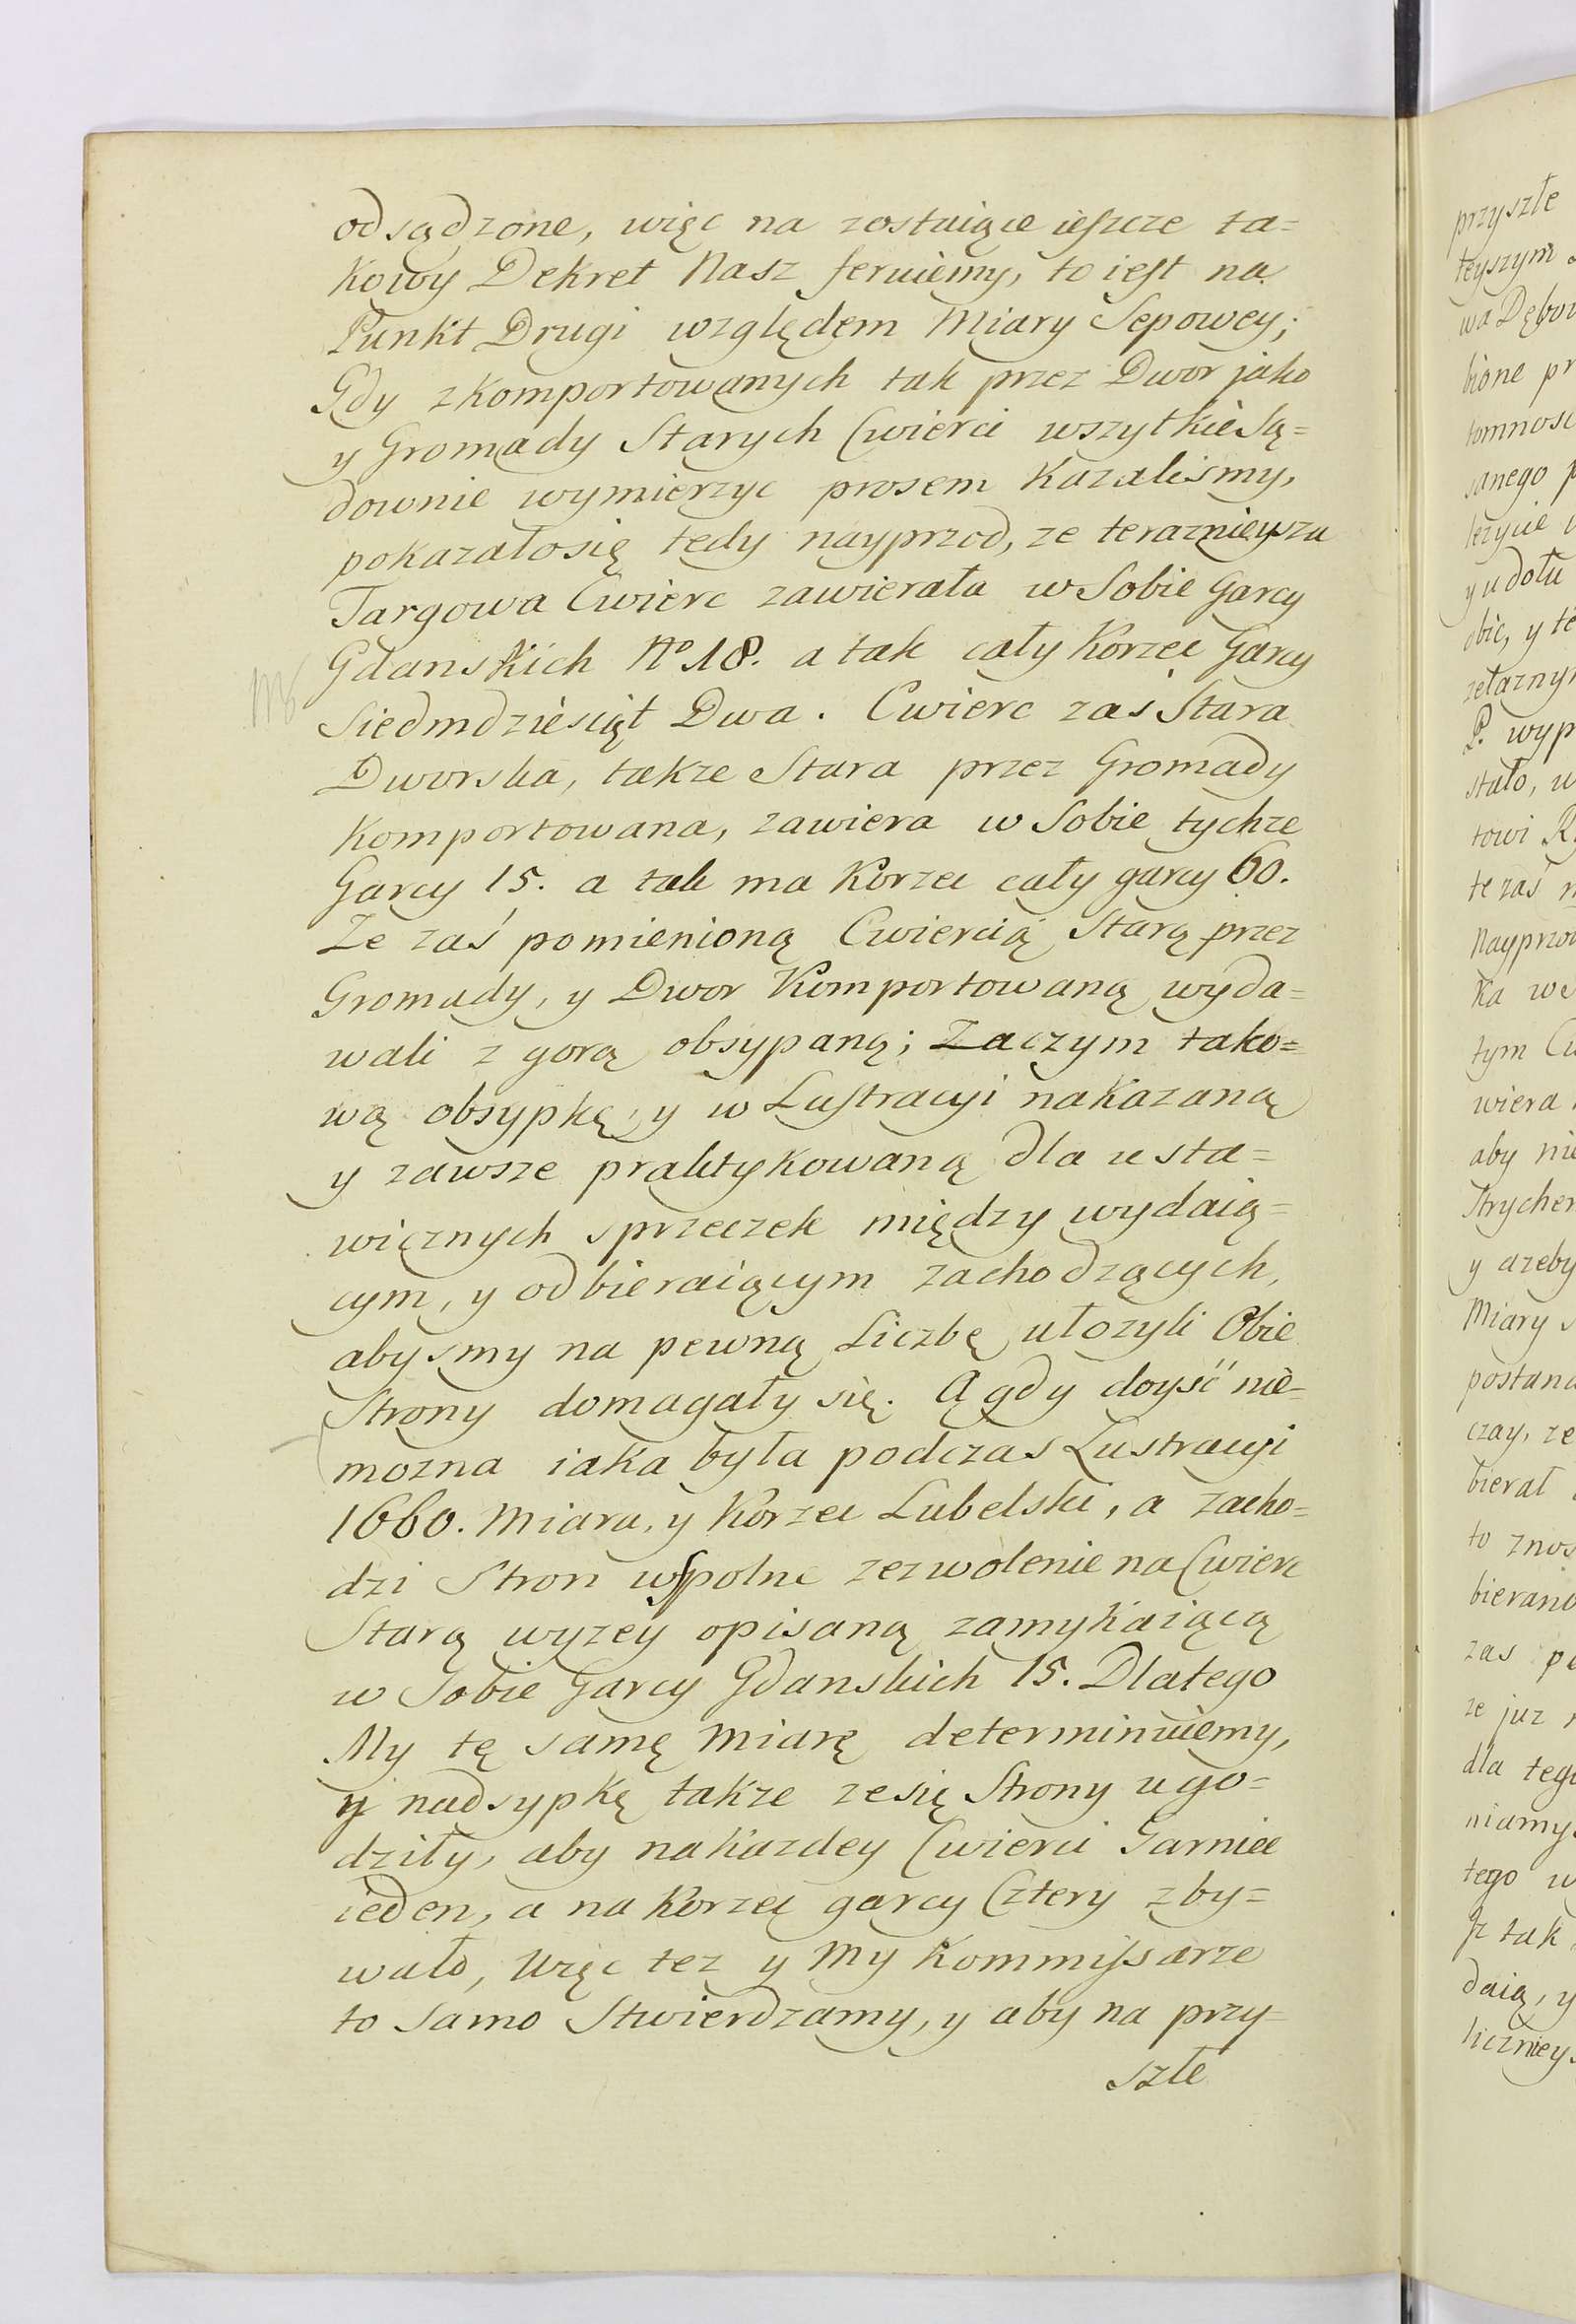 odsądzone, więc na zostaiące ieszcze ta=
kowy Dekret Nasz feruiemy, to iest na
Punkt Drugi względem Miary Sepowey;
Gdy zkomportowanych tak przez Dwor jako
y Gromady Starych Cwierci wszytkie Są=
downie wymierzyc prosem kazalismy,
pokazałosię tedy nayprzod, ze teraznieysza
Targowa Cwierc zawierała w Sobie Garcy
Gdanskich No 18. a tak cały Korzec Garcy
Siedmdziesiąt Dwa. Cwierc zaś Stara
Dworska, takze Stara przez Gromady
komportowana, zawiera w Sobie tychze
Garcy 15. a tak ma Korzec cały garcy 60.
Ze zaś pomienioną Cwiercią Starą przez
Gromady, y Dwor Komportowaną wyda=
wali z gorą obsypaną; Zaczym tako=
wą obsypkę, y w Lustracyi nakazaną
y zawsze praktykowaną dla usta=
wicznych sprzeczek między wydaią=
cym, y odbieraiącym zachodzących,
abysmy na pewną Liczbę ułozyli Obie
Strony domagały się. A gdy doyść nie=
mozna iaka była podczas Lustracyi
1660. Miara, y Korzec Lubelski, a zacho=
dzi Stron wspolne zezwolenie na Cwierc
Starą wyzey opisaną zamykaiącą
w Sobie Garcy Gdanskich 15. Dlatego
My tę samę Miarę determinuiemy,
y nadsypkę takze ze się Strony ugo=
dziły, aby na kazdey Cwierci Garniec
ieden, a na Korzec garcy Cztery zby=
wało, Więc tez y My Kommissarze
to samo Stwierdzamy, y aby na przy=
szłe
przyszłe
teyszym
wa Dębow
bione pr
tomnosc
sanego p
lezycie
y u dołu
obic, y te
zelaznym
P. wyp
stało, u
towi
te zaś
Nayprzod
ka we
tym
wiera
aby nie
Strychem
y azeby
Miary s
postana
czay, ze
bierał
to znos
bierano
zas
ze juz
dla tego
niamy
tego
tak
daią, y
licznieys